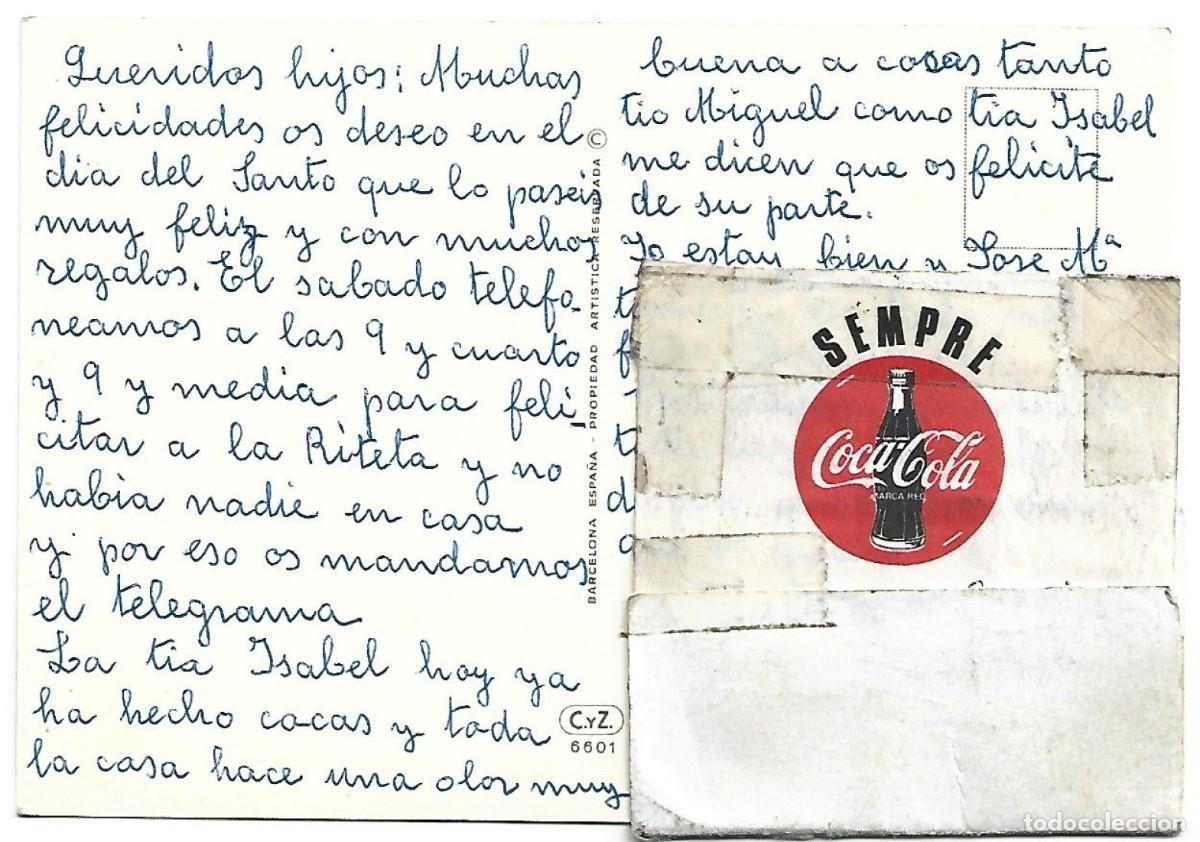 Queridos hijos: Muchas
felicidades os deseo en el
dia del Santo que lo paseis
muy feliz y con muchos
regalos. El sabado telefo
neamos a las 9 y cuarto
y 9 y media para feli
citar a la Riteta y no
habia nadie en casa
y por eso os mandamos
el telegrama
La tia Isabel hoy ya
ha hecho cocas y toda
la casa hace una olor muy
BARCELONA ESPAÑA - PROPIEDAD ARTISTICA RESERVADA ©
C.yZ.
6601
buena a cosas tanto
tio Miguel como tia Isabel
me dicen que os felicite
de su parte.
Yo estan bien y Jose Mª
SEMPRE
Coca-Cola
MARCA REG
todocoleccion